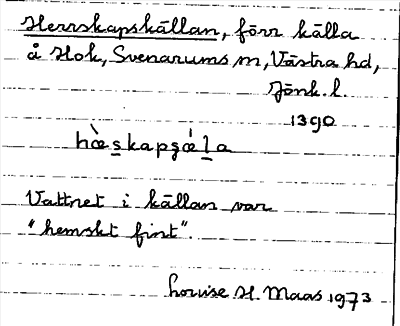 Herrskapskällan, förr källa
å Hok, Svenarums sn, Västra hd,
Jönk. l.
1390
hæ̀skapʂǽla
Vattnet i källan var
"hemskt fint".
Louise H. Maas 1973